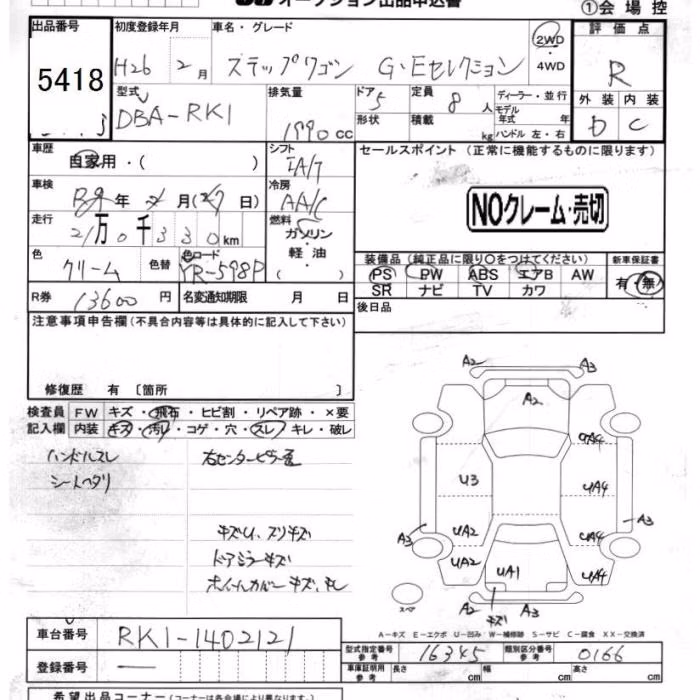 オークション出品申込書
①会場控
出品番号 初度登録年月 車名・グレード 2WD ・ 4WD 評価点
5418 H26 2月 ステップワゴン G・Eセレクション R
型式 排気量 ドア 5 定員 8人 ディーラー・並行 外装 内装
DBA-RK1 1990cc 形状 積載 kg モデル年式 年 ハンドル 左・右 D C
車歴 自家用・( ) シフト IA/T セールスポイント (正常に機能するものに限ります)
車検 年 月 日 冷房 AA/C
NOクレーム・売切
走行 21万0千330km 燃料 ガソリン・軽油 ( )
装備品 (純正品に限り○をつけてください) 新車保証書
色 クリーム 色替 色コード YR-598P PS PW ABS エアB AW 有・無
SR ナビ TV カワ
R券 13600円 名変通知期限 月 日 後日品
注意事項申告欄 (不具合内容等は具体的に記入して下さい)
修復歴 有 〔箇所 〕
検査員 FW キズ・飛石・ヒビ割・リペア跡・×要
記入欄 内装 キズ・汚レ・コゲ・穴・スレ・キレ・破レ
ハンドルスレ
シートヘタリ
右センターピラー歪
キズU、スリキズ
ドアミラーキズ
ホイールカバーキズ、欠レ
A2 A3
A2
UA4
U3 UA4
A3 UA2 UA4 A3
UA2 UA1 UA4
スペア A2 キズ A3
A-キズ E-エクボ U-凹み W-補修跡 S-サビ C-腐食 XX-交換済
車台番号 RK1-1402121
型式指定番号 参考 16385 類別区分番号 参考 0166
登録番号 —
車庫証明用 参考 長さ 幅 高さ
希望出品コーナー (コーナーは各会場で異なります)